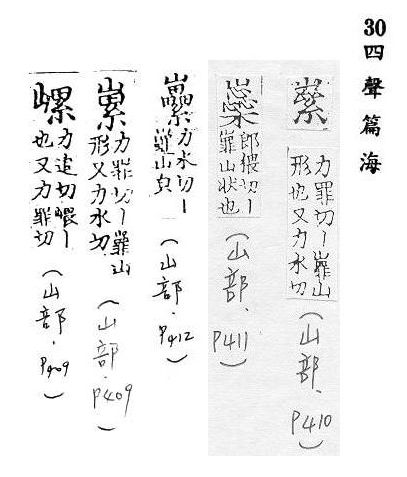 30四聲篇海
力罪切丨嶵山
形也又力水切
（山部．P410）
郎猥切丨
嶵山狀也
（山部．P411）
力水切丨
嶵山皃
（山部．P412）
力罪切丨嶵山
形又力水切
（山部．P409）
力追切嵔丨
也又力罪切
（山部．P409）